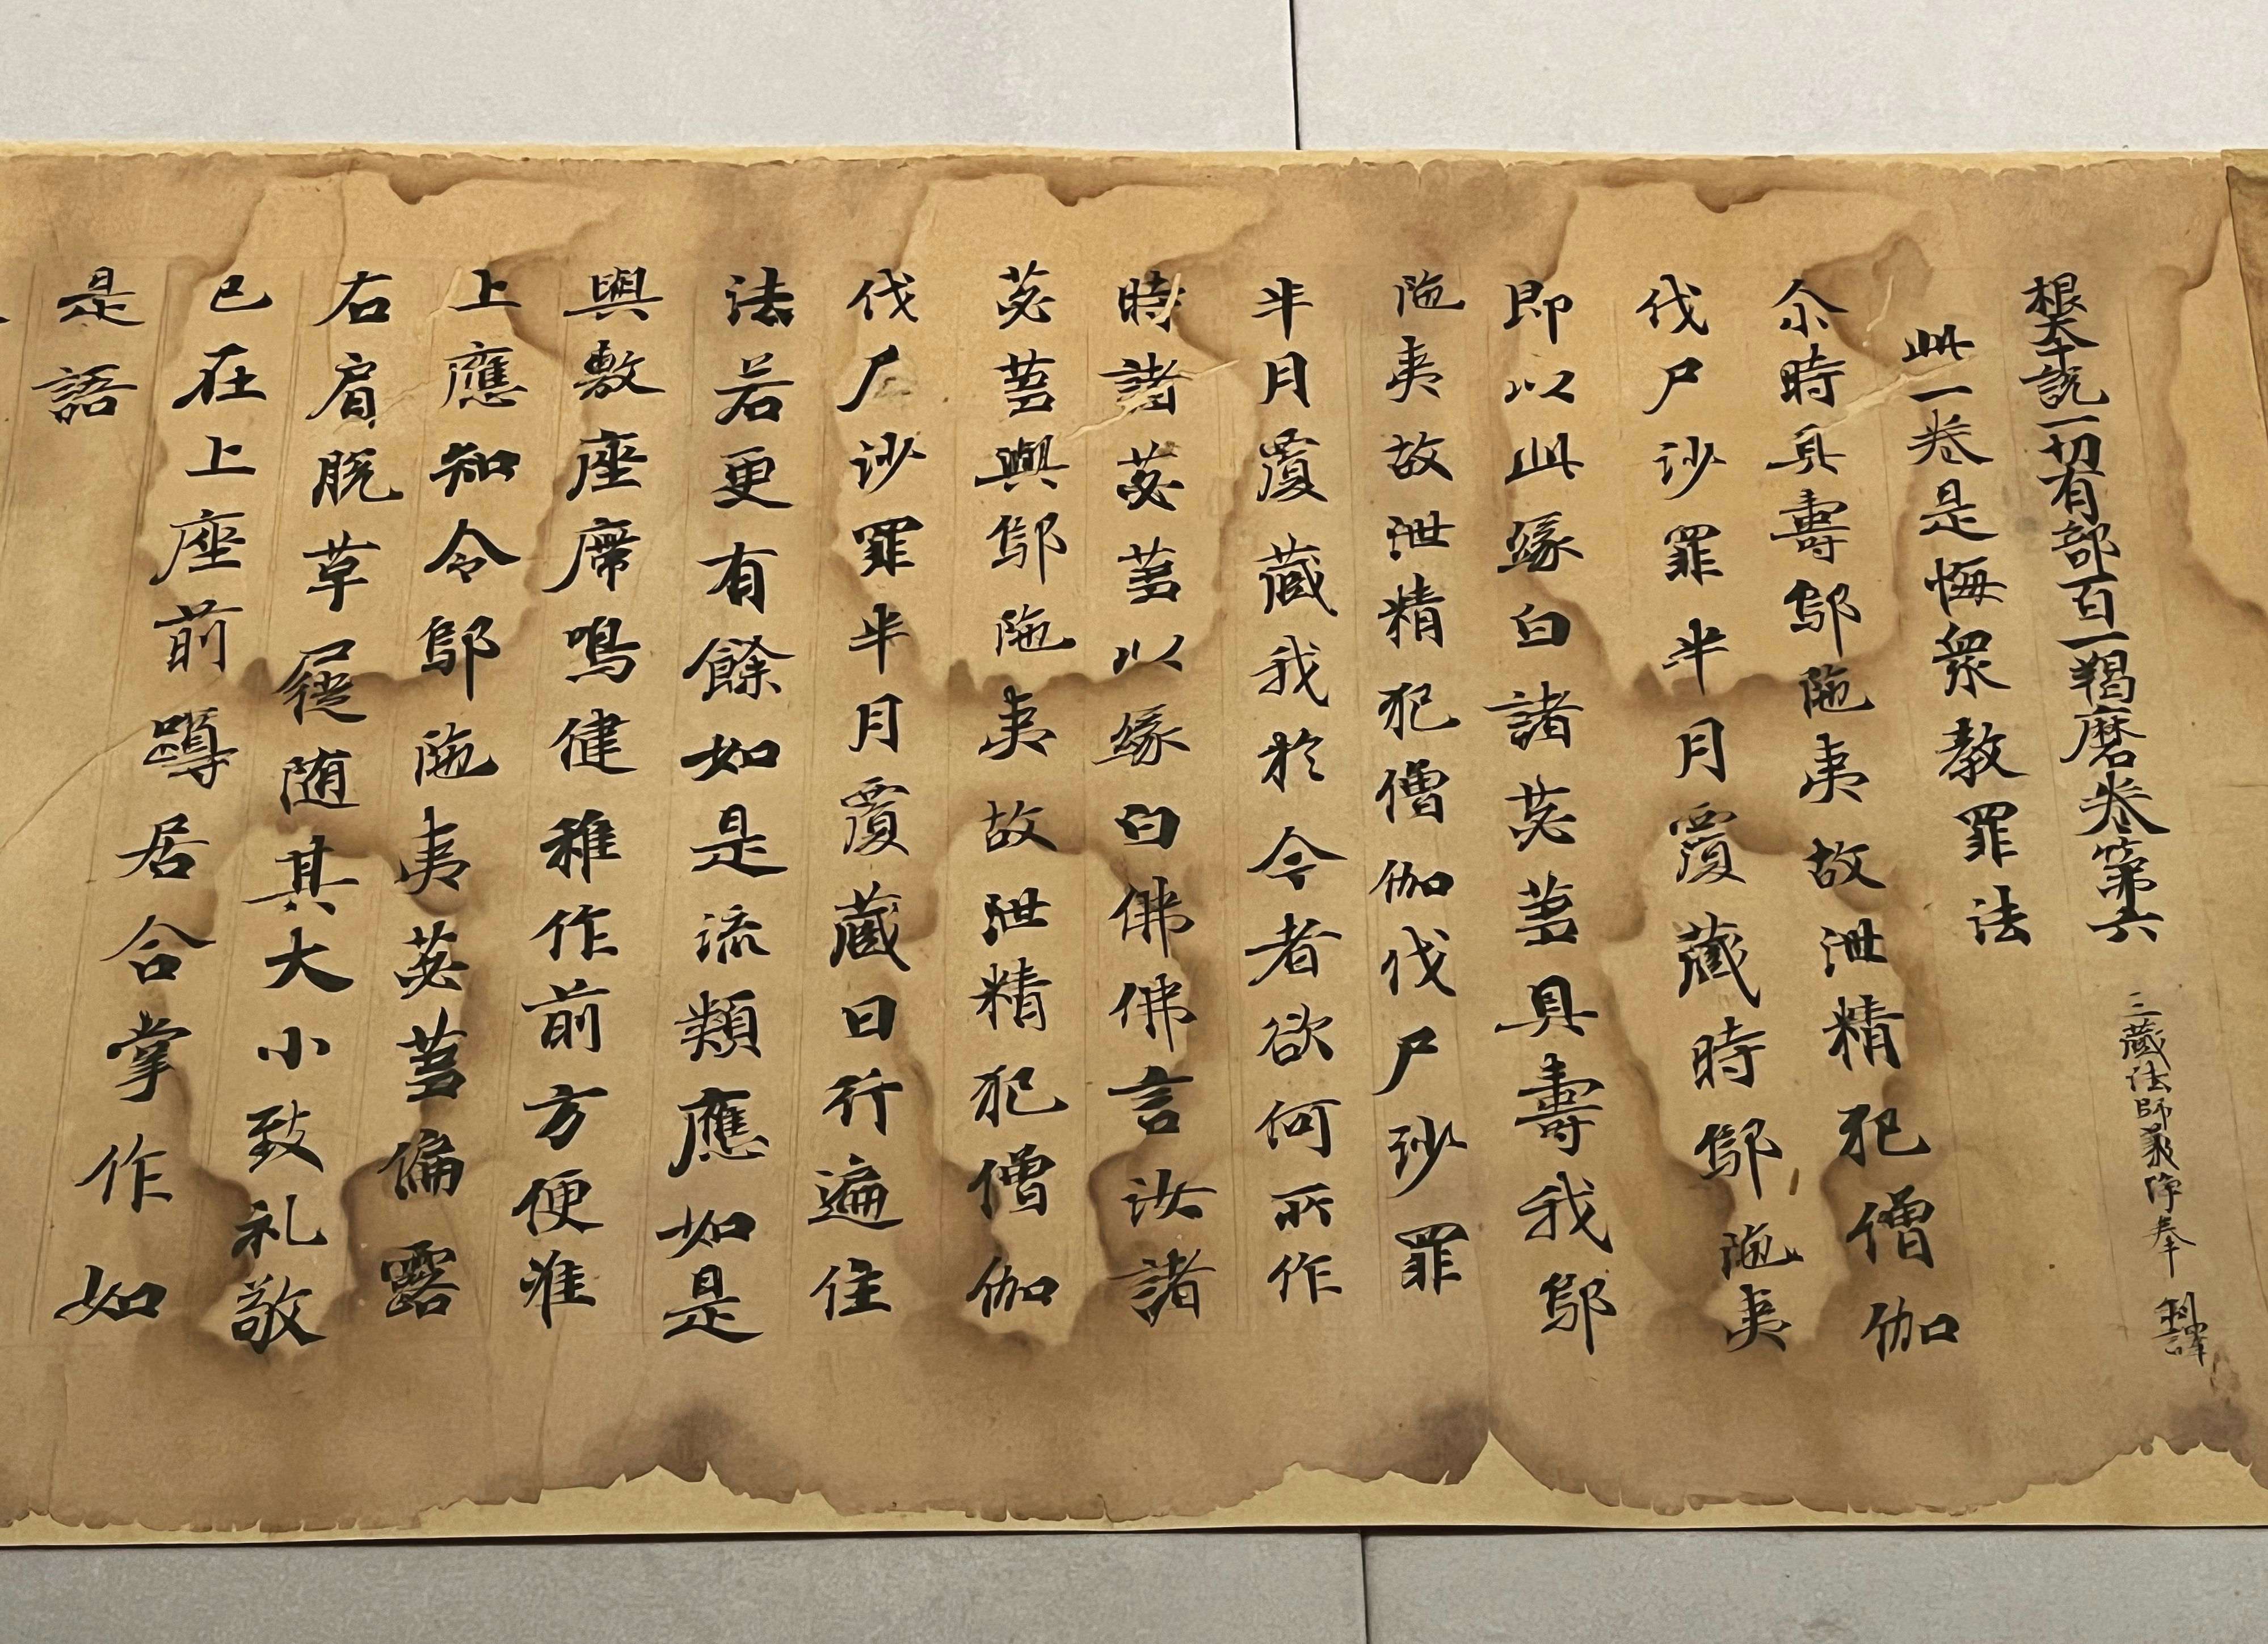 根本說一切有部百一羯磨卷第六 三藏法師義淨奉 制譯
此一卷是悔衆教罪法
尒時具壽鄔陁夷故泄精犯僧伽
伐尸沙罪半月覆藏時鄔陁夷
即以此緣白諸苾蒭具壽我鄔
陁夷故泄精犯僧伽伐尸沙罪
半月覆藏我於今者欲何所作
時諸苾蒭以緣白佛佛言汝諸
苾蒭與鄔陁夷故泄精犯僧伽
伐尸沙罪半月覆藏日行遍住
法若更有餘如是流類應如是
與敷座席鳴健稚作前方便准
上應知令鄔陁夷苾蒭偏露
右肩脫草屣随其大小致礼敬
已在上座前蹲居合掌作如
是語